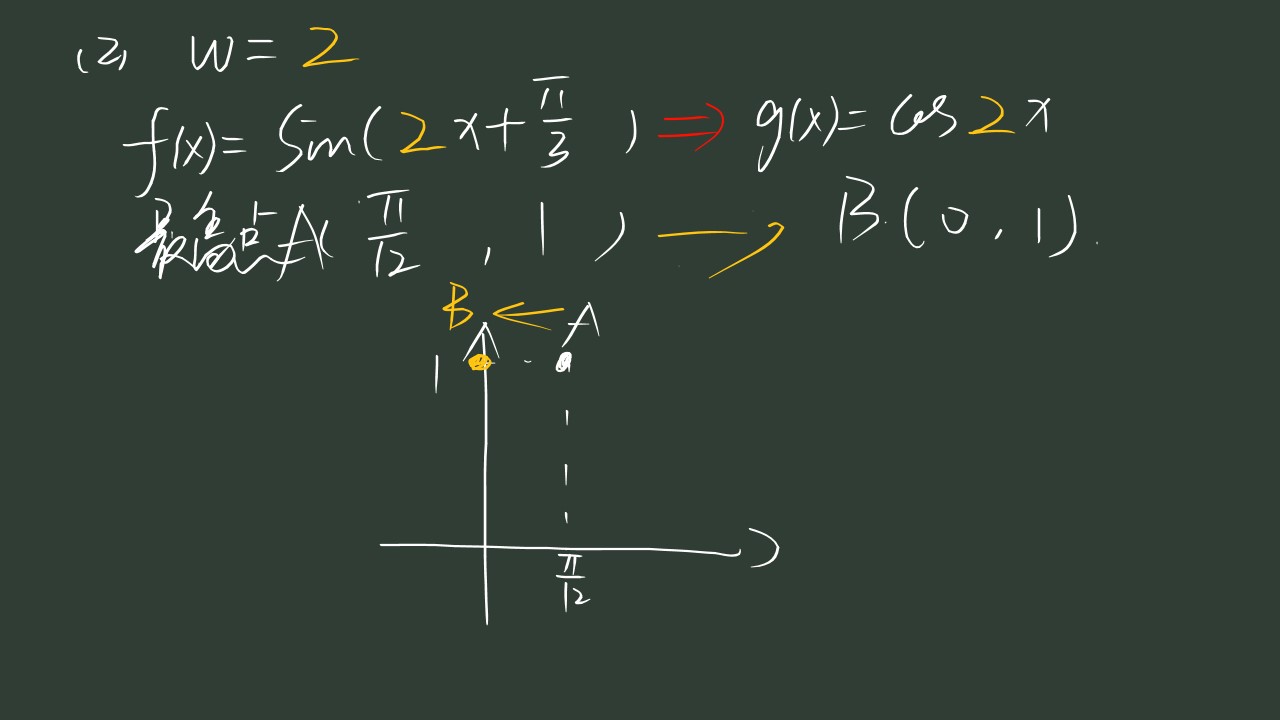 (2) w = 2
f(x) = Sin(2x + π/3) ⇒ g(x) = cos2x
最高点A(π/12, 1) → B(0, 1).
B ← A
1
π/12